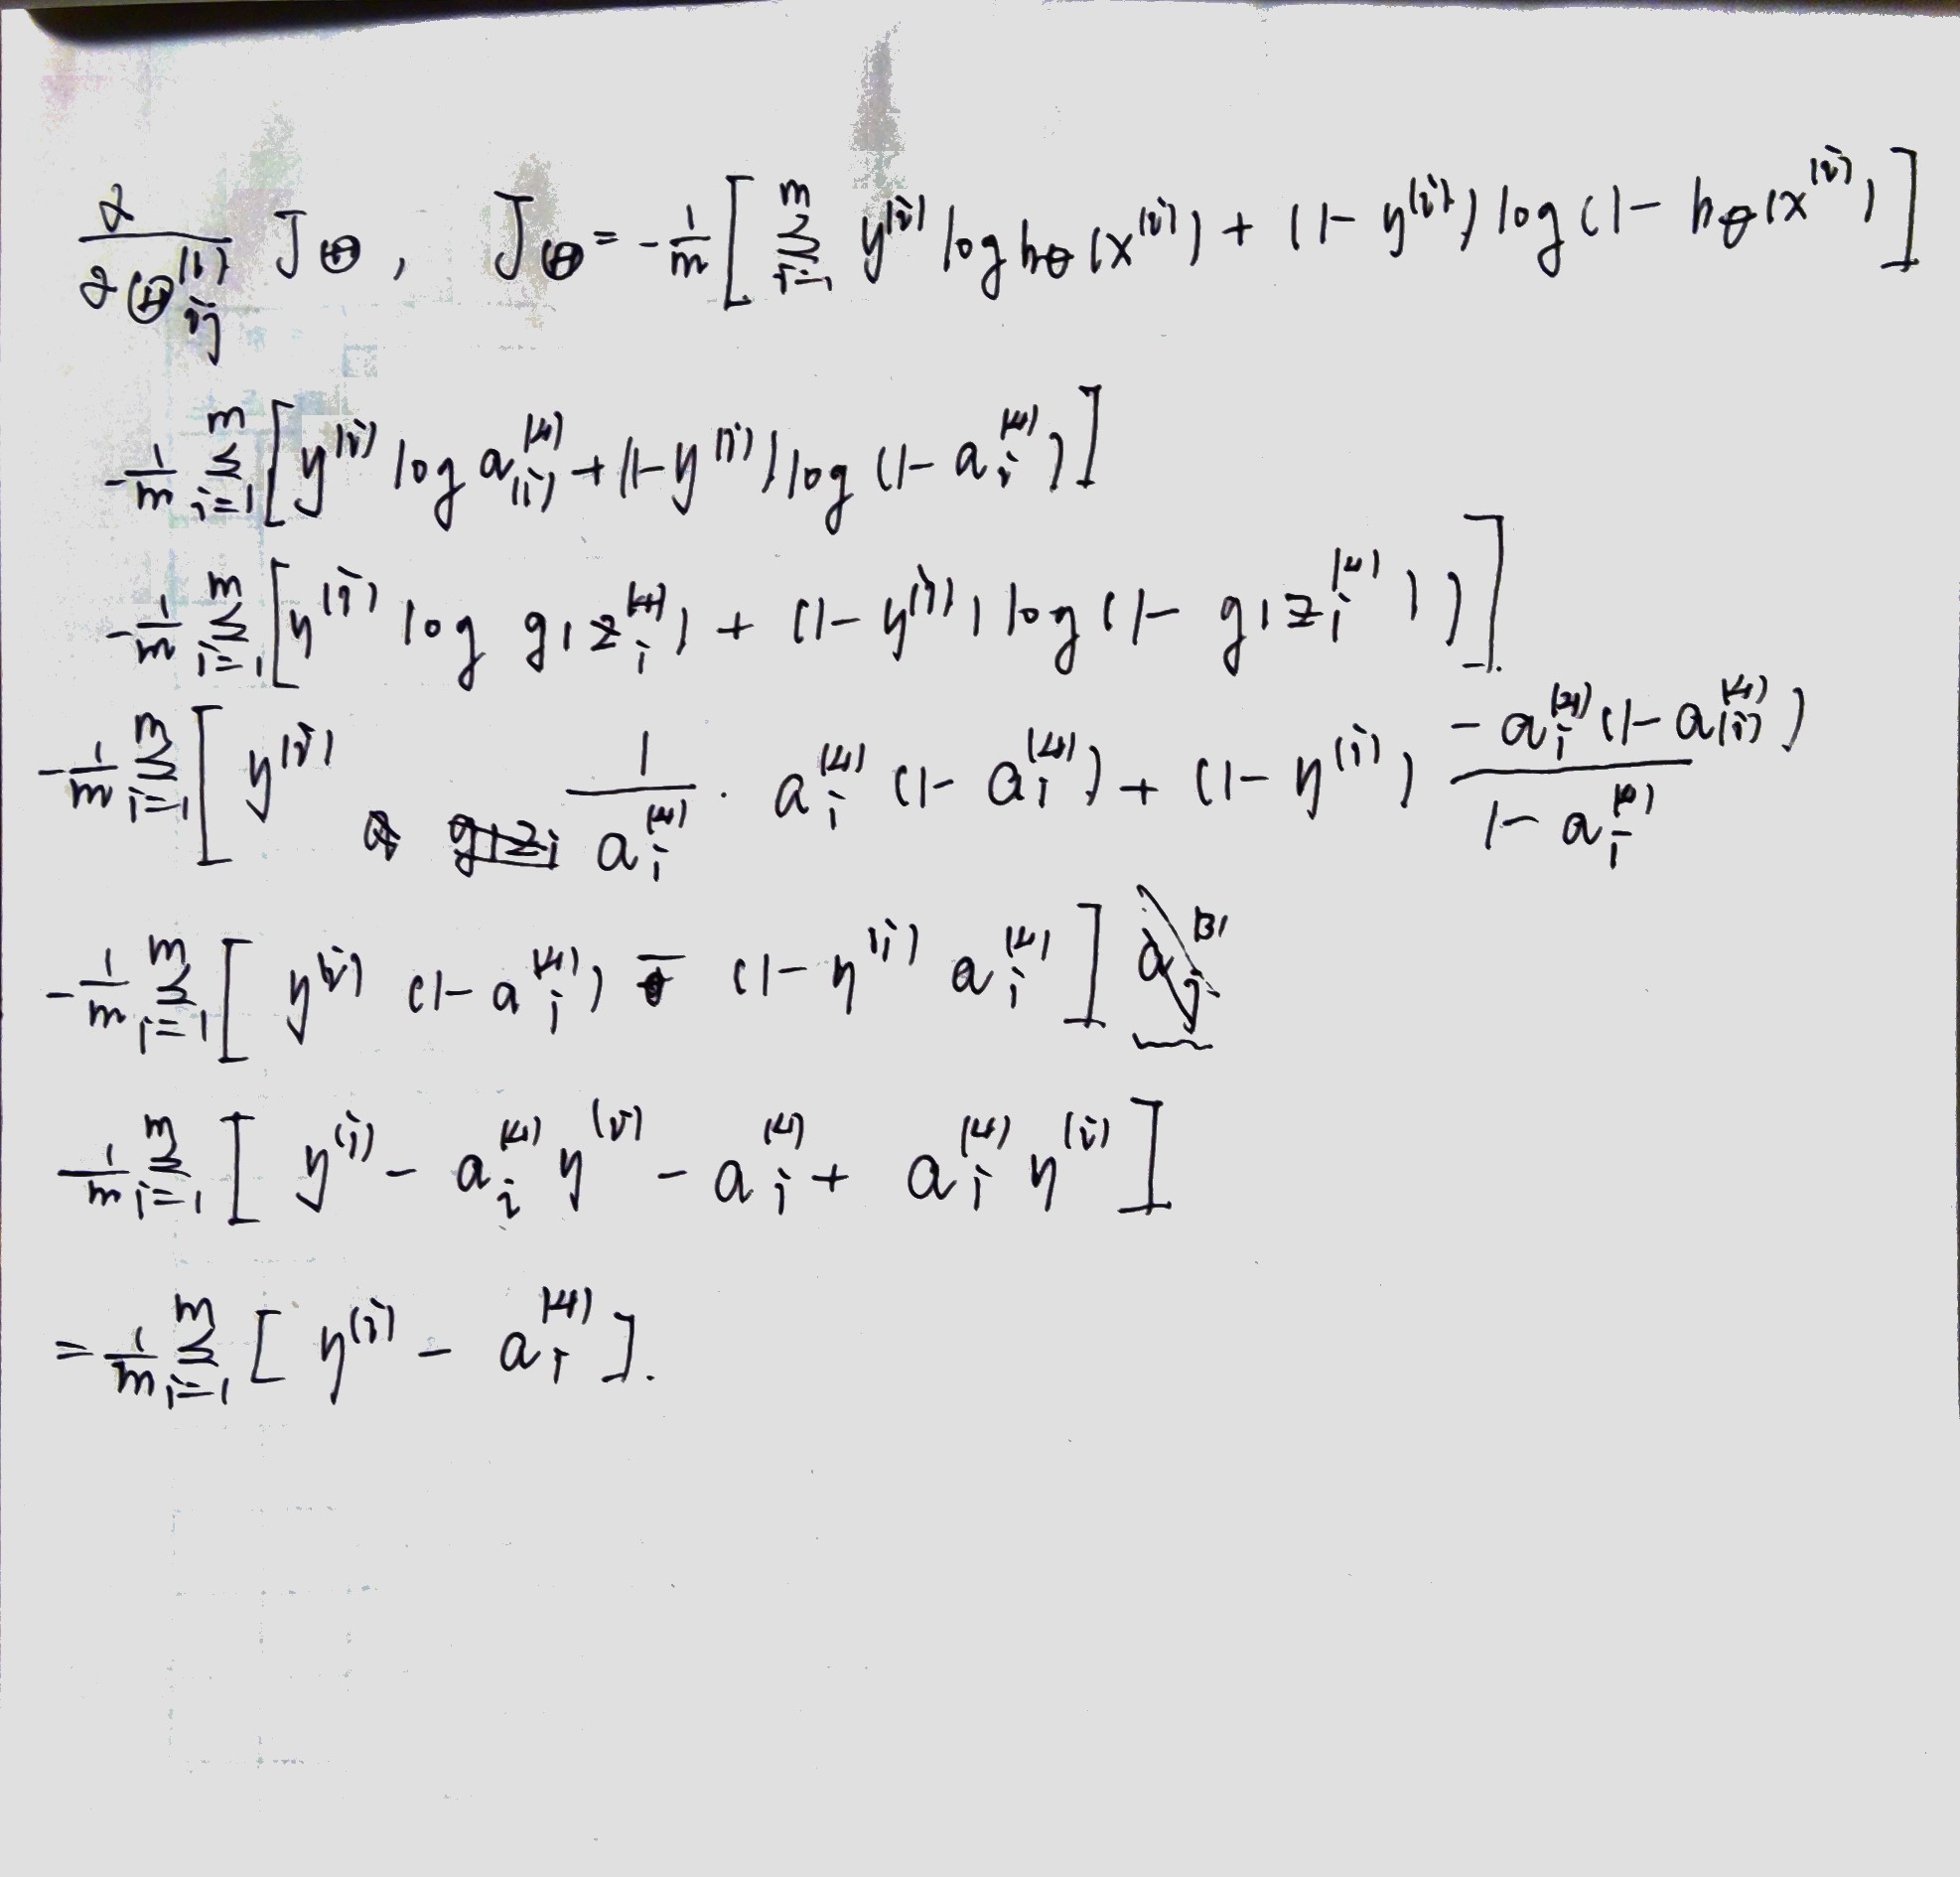 ∂/∂Θ_{ij}^{(l)} J_Θ, J_Θ = -1/m [ Σ_{i=1}^{m} y^{(i)} log h_θ(x^{(i)}) + (1 - y^{(i)}) log(1 - h_θ(x^{(i)}) ]
-1/m Σ_{i=1}^{m} [ y^{(i)} log a_{(i)}^{(4)} + (1 - y^{(i)}) log (1 - a_i^{(4)}) ]
-1/m Σ_{i=1}^{m} [ y^{(i)} log g(z_i^{(4)}) + (1 - y^{(i)}) log (1 - g(z_i^{(4)})) ]
-1/m Σ_{i=1}^{m} [ y^{(i)} 1/a_i^{(4)} · a_i^{(4)} (1 - a_i^{(4)}) + (1 - y^{(i)}) -a_i^{(4)} (1 - a_{(i)}^{(4)}) / 1 - a_i^{(4)}
-1/m Σ_{i=1}^{m} [ y^{(i)} (1 - a_i^{(4)}) - (1 - y^{(i)} a_i^{(4)} ] a_j^{(3)}
-1/m Σ_{i=1}^{m} [ y^{(i)} - a_i^{(4)} y^{(i)} - a_i^{(4)} + a_i^{(4)} y^{(i)} ]
= -1/m Σ_{i=1}^{m} [ y^{(i)} - a_i^{(4)} ].